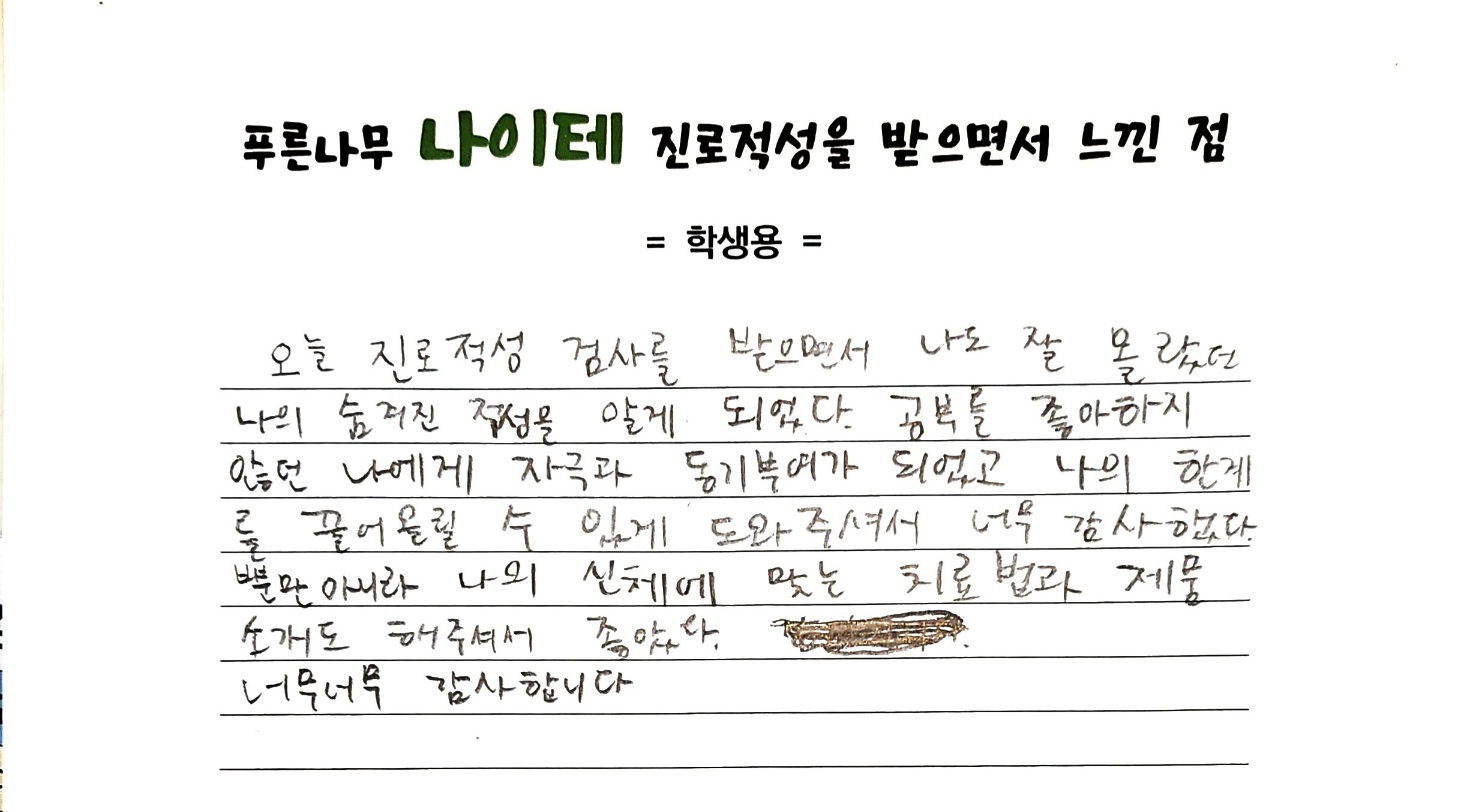 푸른나무 나이테 진로적성을 받으면서 느낀 점
= 학생용 =
오늘 진로적성 검사를 받으면서 나도 잘 몰랐던
나의 숨겨진 적성을 알게 되었다. 공부를 좋아하지
않던 나에게 자극과 동기부여가 되었고 나의 한계
를 끌어올릴 수 있게 도와주셔서 너무 감사했다.
뿐만아니라 나의 신체에 맞는 치료법과 제품
소개도 해주셔서 좋았다.
너무너무 감사합니다